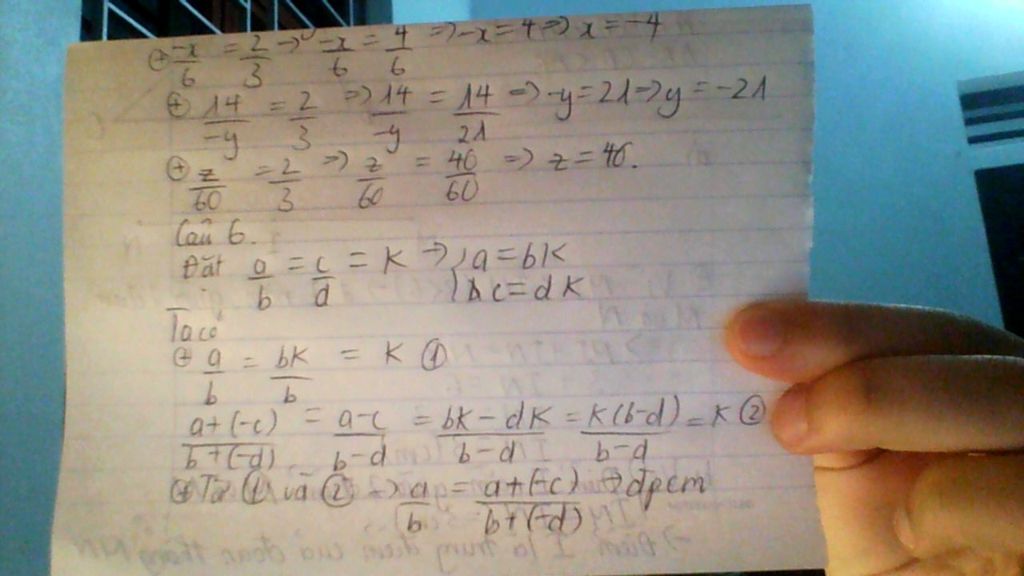 ⊕ -x/6 = 2/3 → -x/6 = 4/6 ⇒ -x = 4 ⇒ x = -4
⊕ 14/-y = 2/3 ⇒ 14/-y = 14/21 ⇒ -y = 21 ⇒ y = -21
⊕ z/60 = 2/3 ⇒ z/60 = 40/60 ⇒ z = 40.
Câu 6.
Đặt a/b = c/d = K → { a = bK
c = dK
Ta có
⊕ a/b = bK/b = K ①
a+(-c)/b+(-d) = a-c/b-d = bK-dK/b-d = K(b-d)/b-d = K ②
⊕ Từ ① và ② → a/b = a+(-c)/b+(-d) → đpcm